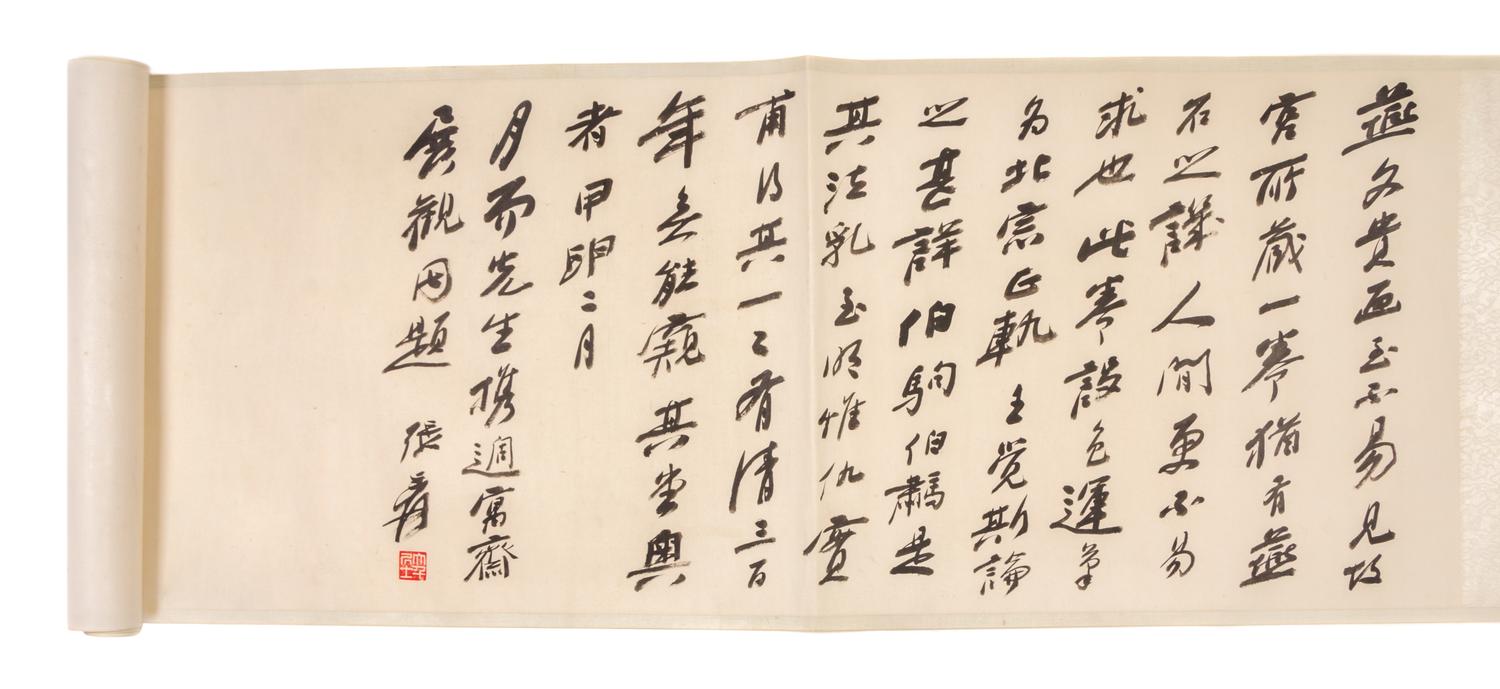 燕文貴畫至不易見故
宮所藏一卷猶有燕
石之譏人間更不易
求也此卷設色運筆
為北宗正軌王覺斯論
之甚詳伯駒伯驌是
其法乳至明惟仇實
甫得其一二有清三百
年無能窺其堂奧
者甲卯二月
月而先生攜適寓齋
展觀因題 張爰